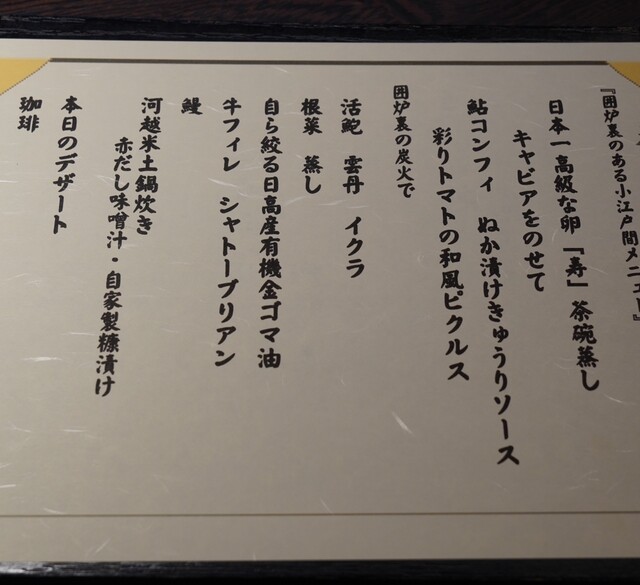 『囲炉裏のある小江戸間メニュー』
日本一高級な卵『寿』茶碗蒸し
キャビアをのせて
鮎コンフィ ぬか漬けきゅうりソース
彩りトマトの和風ピクルス
囲炉裏の炭火で
活鮑 雲丹 イクラ
根菜 蒸し
自ら絞る日高産有機金ゴマ油
牛フィレ シャトーブリアン
鰻
河越米土鍋炊き
赤だし味噌汁・自家製糠漬け
本日のデザート
珈琲